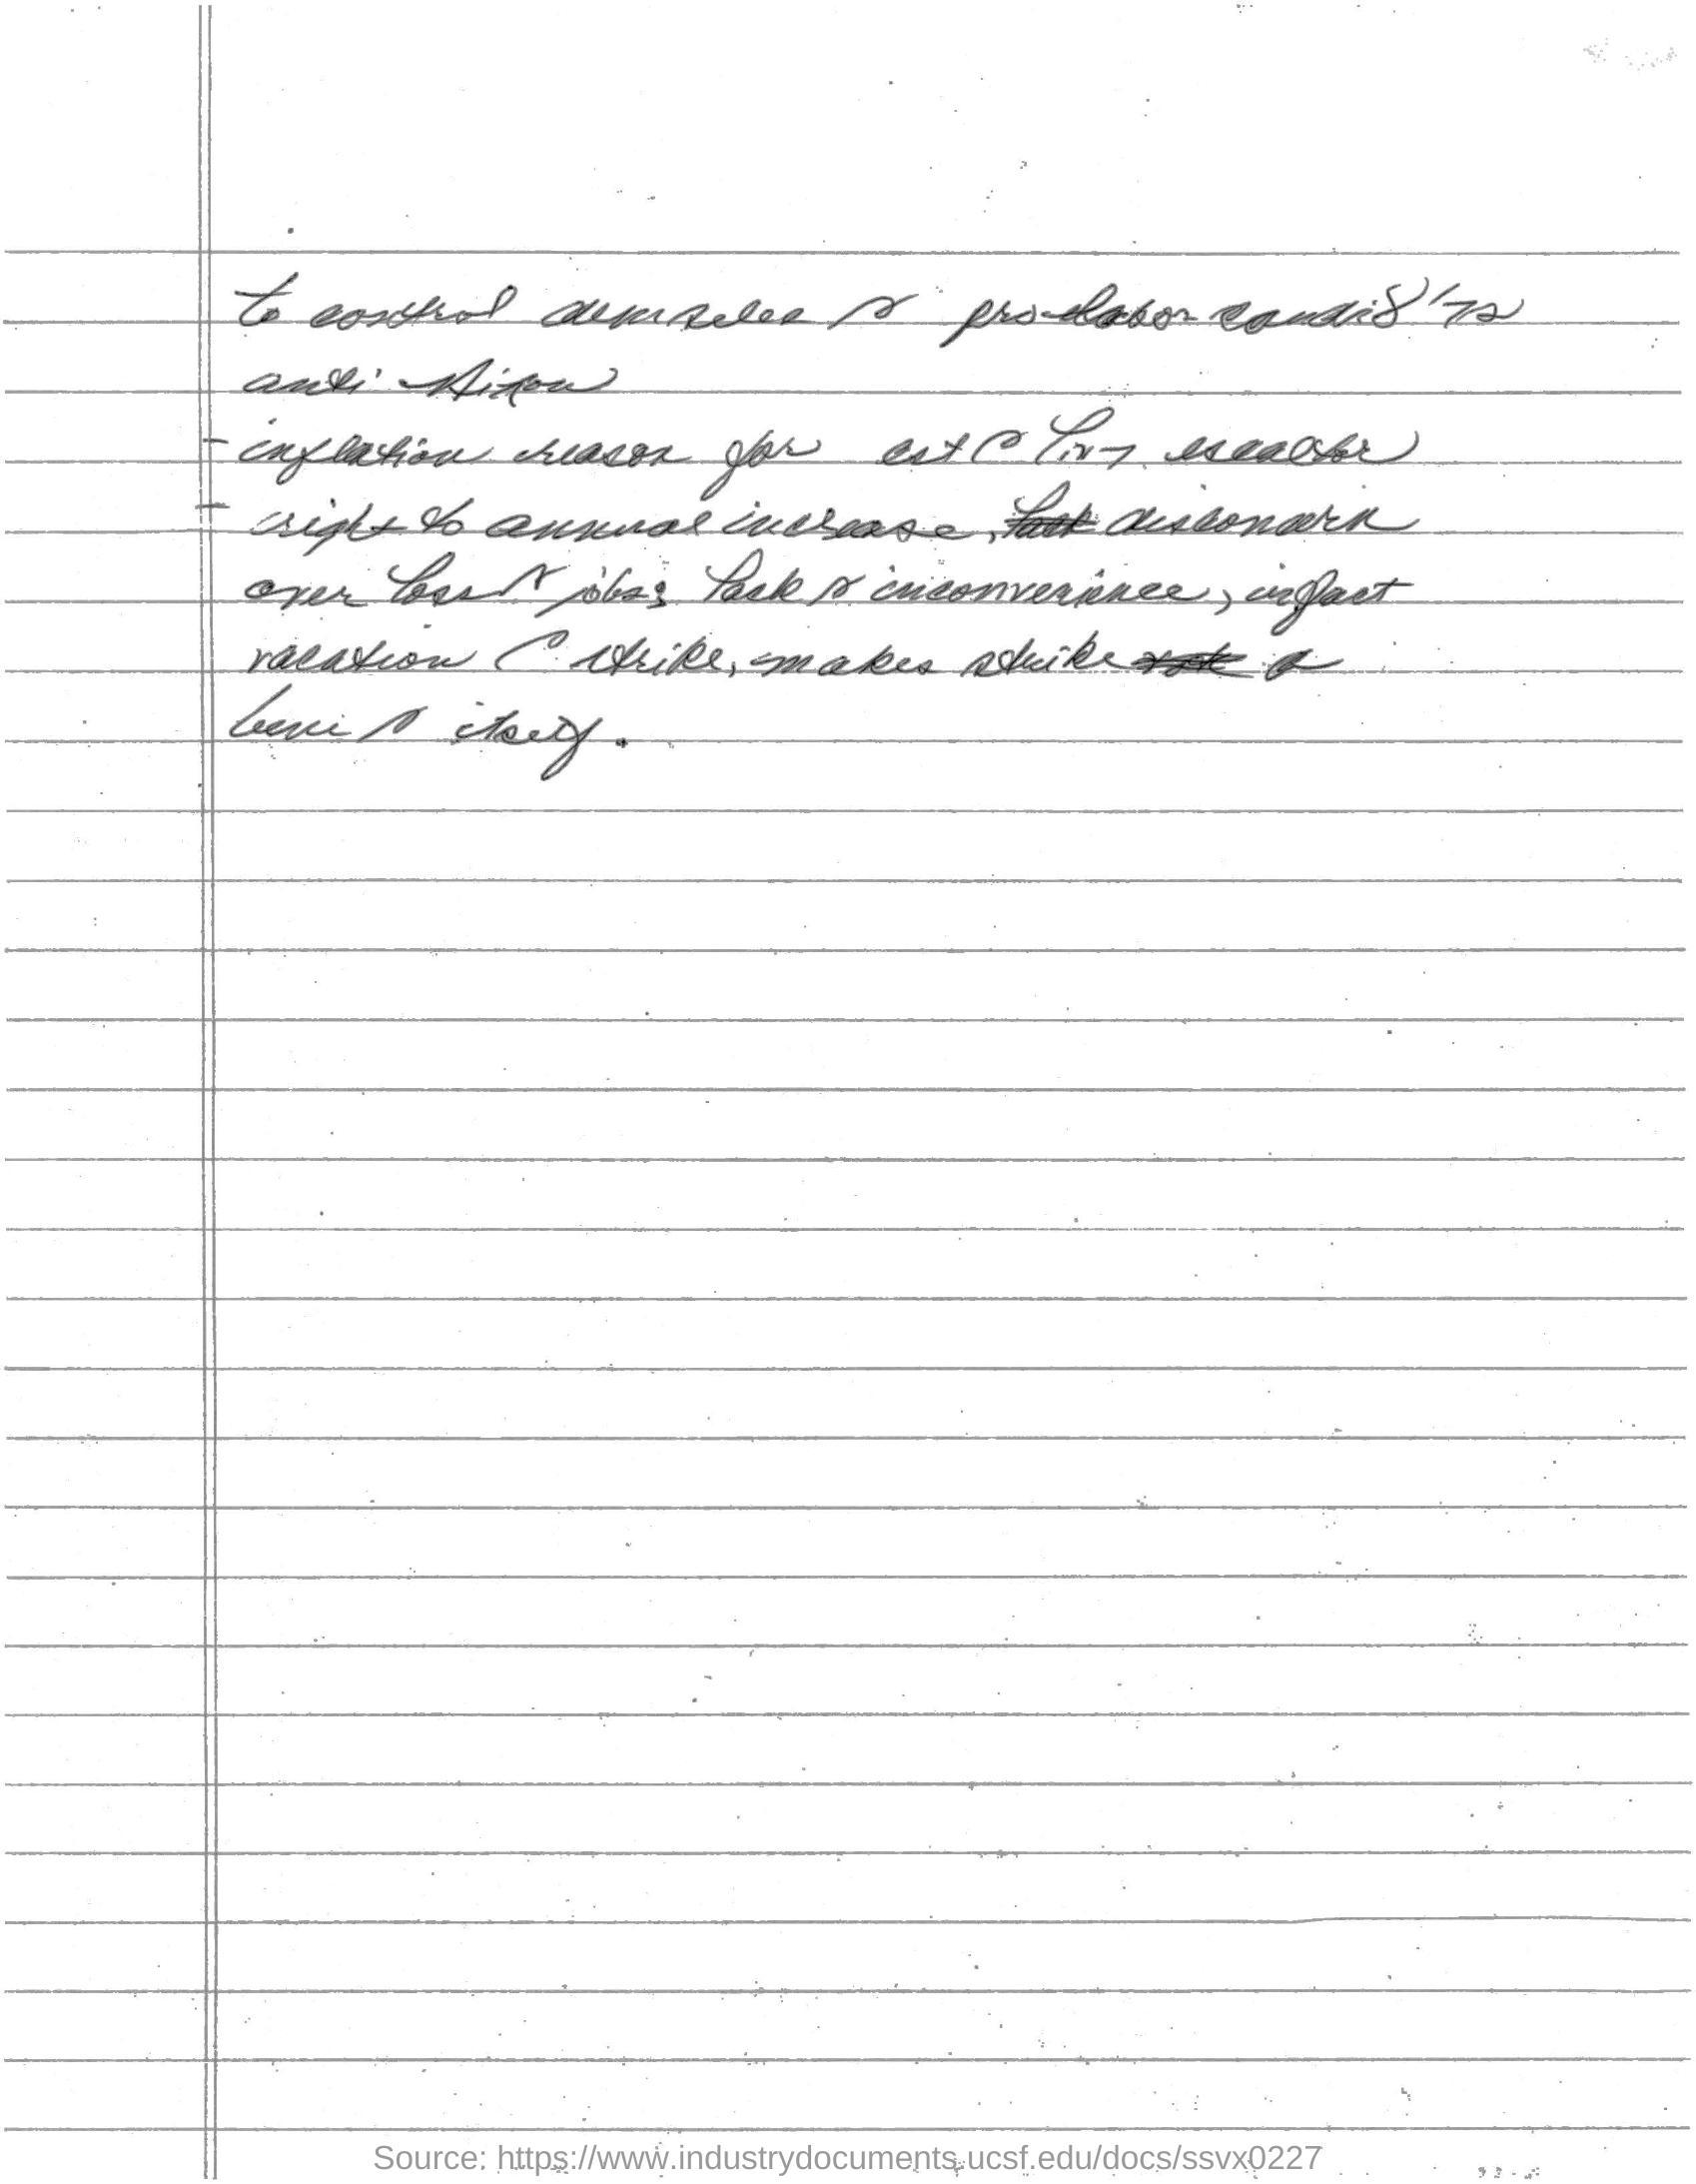 to control dem selec pro-labor
anti Nixon
- inflation reason for
- right to annual increase,
over loss jobs; lack inconvenience, in fact
vacation strike, makes strike a
itself.
Source: https://www.industrydocuments.ucsf.edu/docs/ssvx0227